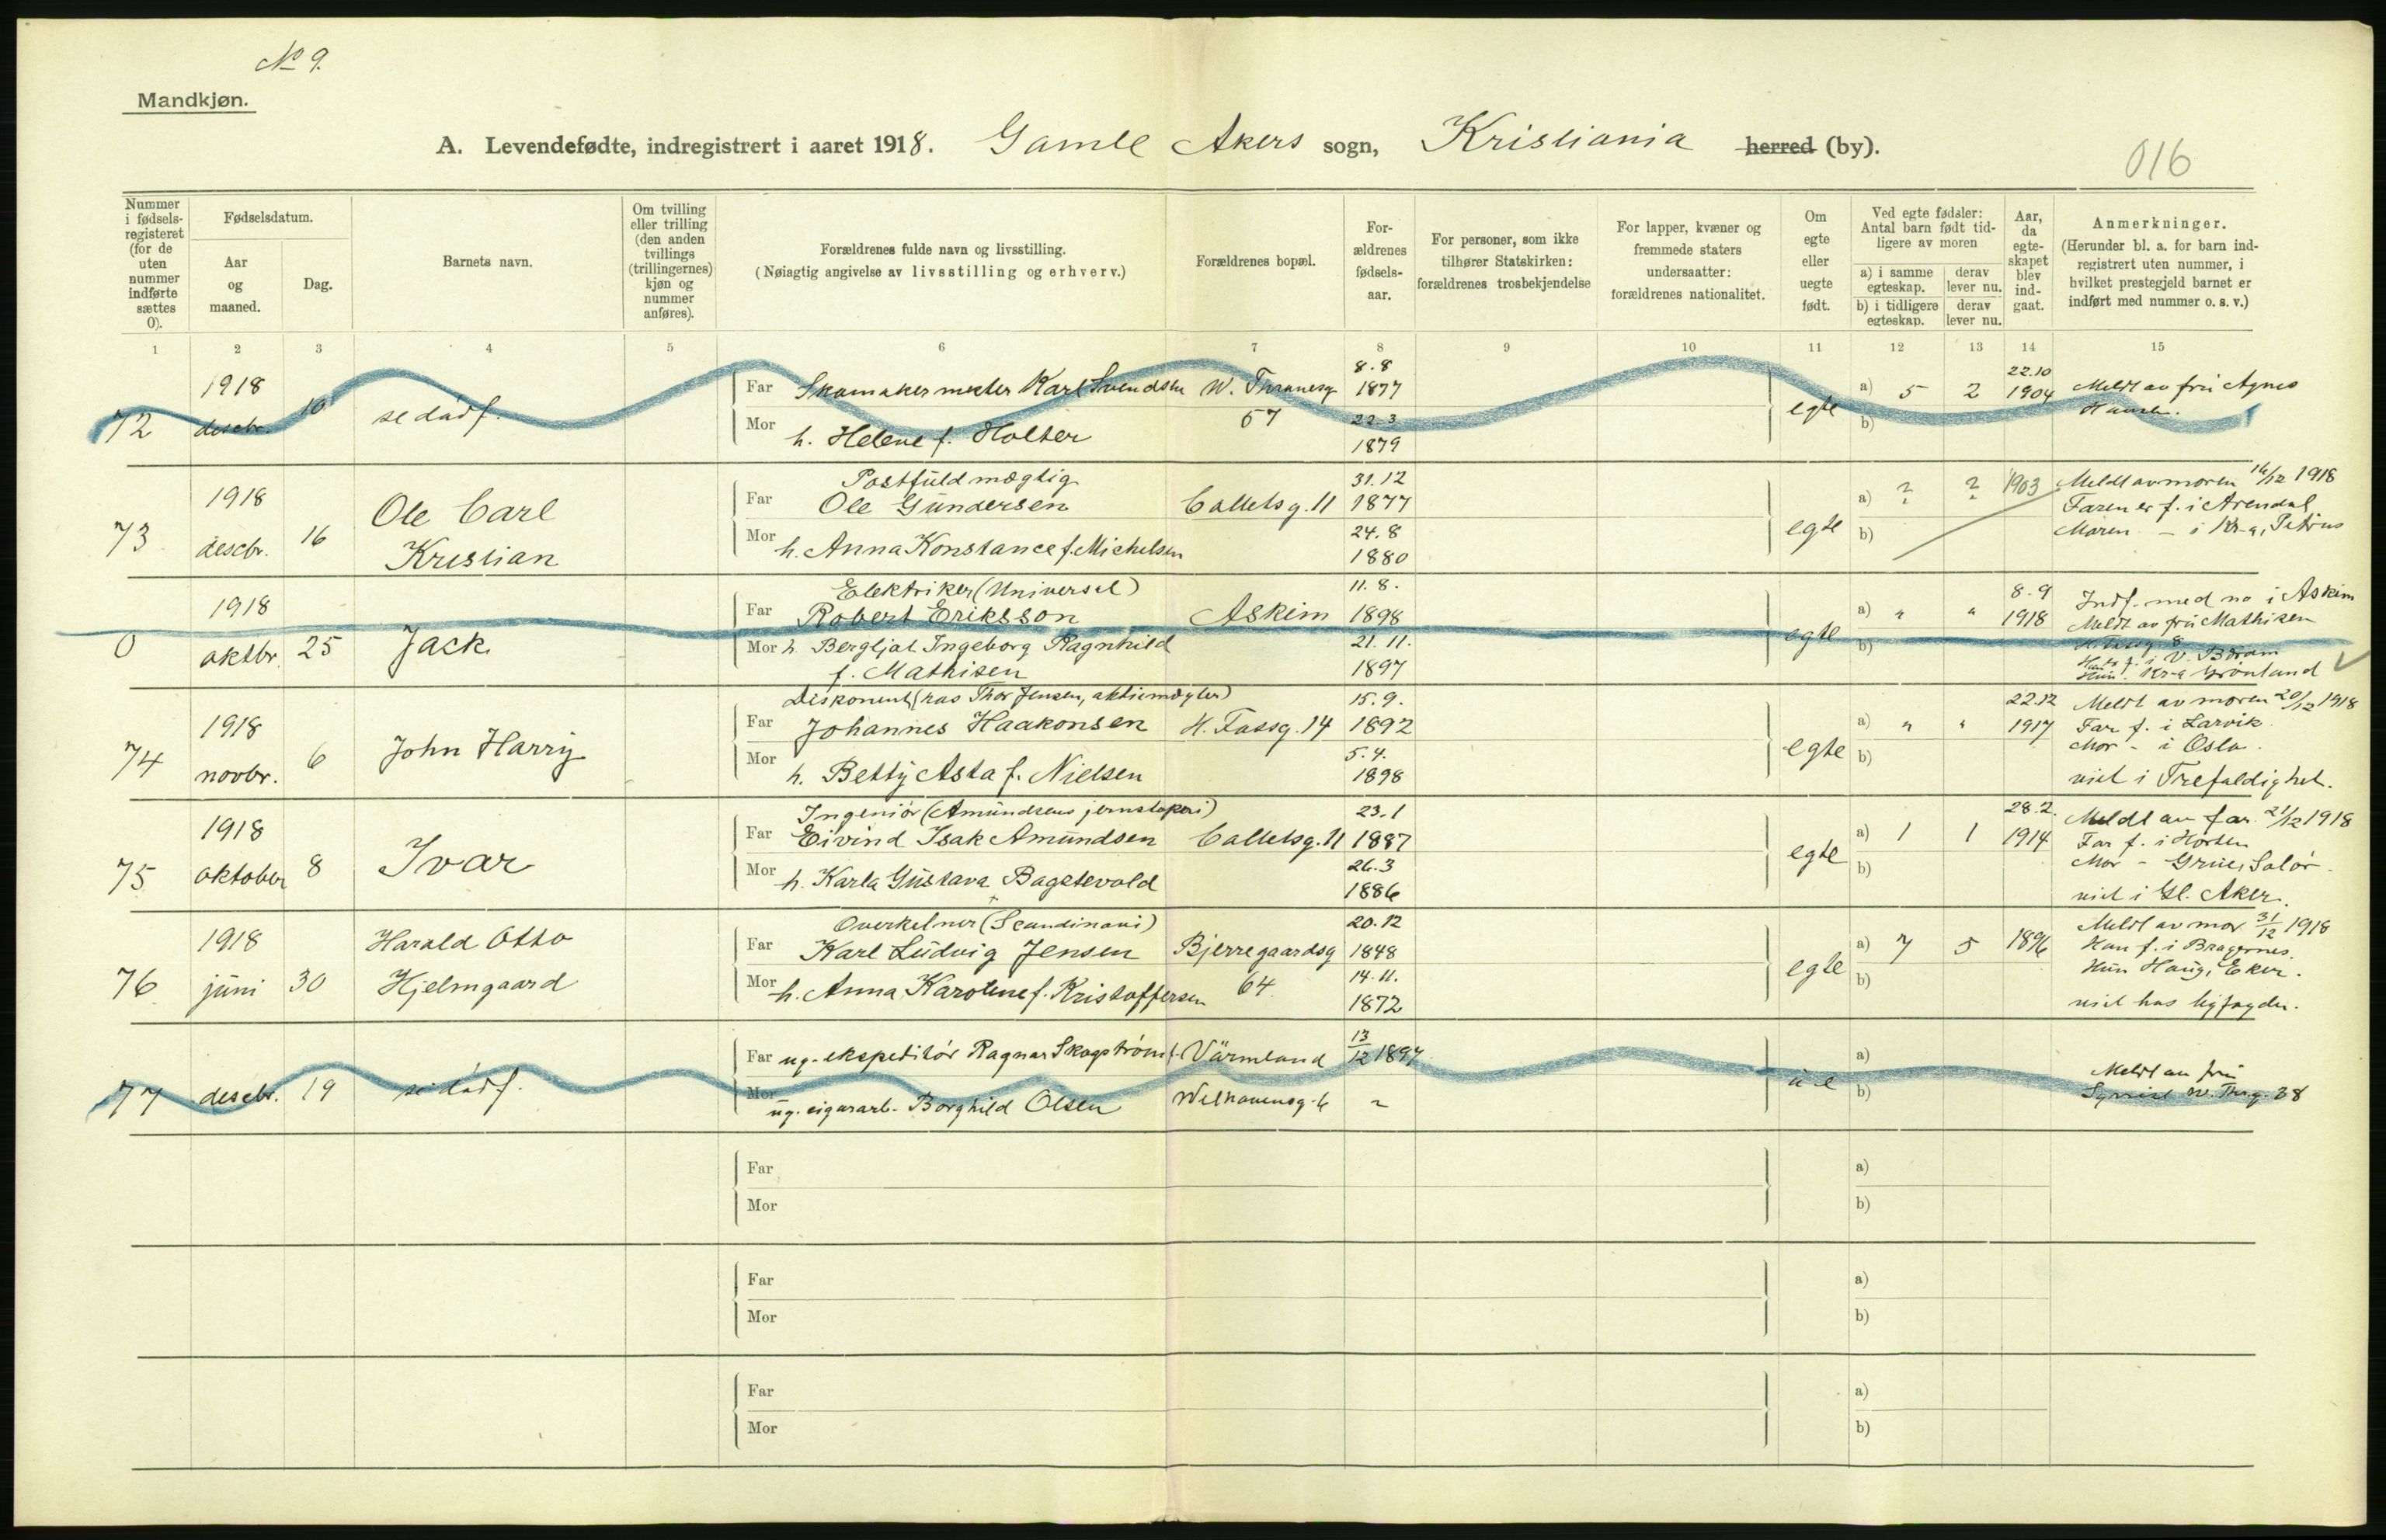 No 9.
Mandkjøn.
A. Levendefødte, indregistrert i aaret 1918. Gamle Akers sogn, Kristiania herred (by).
016
Nummer i fødsels-registeret (for de uten nummer indførte sættes 0).
Fødselsdatum.
Aar og maaned.
Dag.
Barnets navn.
Om tvilling eller trilling (den anden tvillings (trillingernes) kjøn og nummer anføres).
Forældrenes fulde navn og livsstilling.
(Nøiagtig angivelse av livsstilling og erhverv.)
Forældrenes bopæl.
For-ældrenes fødsels-aar.
For personer, som ikke tilhører Statskirken: forældrenes trosbekjendelse
For lapper, kvæner og fremmede staters undersaatter: forældrenes nationalitet.
Om egte eller uegte født.
Ved egte fødsler: Antal barn født tid-ligere av moren
a) i samme egteskap. derav lever nu.
b) i tidligere egteskap. derav lever nu.
Aar, da egte-skapet blev ind-gaat.
Anmerkninger.
(Herunder bl. a. for barn ind-registrert uten nummer, i hvilket prestegjeld barnet er indført med nummer o. s. v.)
1 2 3 4 5 6 7 8 9 10 11 12 13 14 15
72 1918 descbr. 10 se dødf.
Far Skomakermester Karl Svendsen W. Thranesg 8.8 1877
Mor h. Helene f. Holter 57 22.3 1879
egte a) 5 2 22.10 1904 Meldt av fru Agnes
b)
73 1918 descbr. 16 Ole Carl Kristian
Postfuldmægtig
Far Ole Gundersen Colletsg. 11 31.12 1877
Mor h. Anna Konstance f. Michelsen 24.8 1880
egte a) ? ? 1903 Meldt av moren 16/12 1918
b) Faren er f. i Arendal
Moren - i Kr-a, Petrus
0 1918 oktbr. 25 Jack
Elektriker (Universal)
Far Robert Eriksson Askim 11.8. 1898
Mor h. Bergljot Ingeborg Ragnhild f. Mathisen 21.11. 1897
egte a) " " 8.9 1918 Indf. med no i Askim
b) Meldt av fru Mathisen
f. i V. Bærum
Hun Kr-a Grønland
74 1918 novbr. 6 John Harry
Diskonent (hos Thor Jensen, aktiemægler)
Far Johannes Haakonsen H. Fossg. 14 15.9. 1892
Mor h. Betty Asta f. Nielsen 5.4. 1898
egte a) " " 22.12 1917 Meldt av moren 20/12 1918
b) Far f. i Larvik.
Mor - i Oslo.
viet i Trefoldighet.
75 1918 oktober 8 Ivar
Ingeniør (Amundsens jernstøperi)
Far Eivind Isak Amundsen Colletsg. 11 23.1 1887
Mor h. Karla Gustava Bagstevold 26.3 1886
egte a) 1 1 28.2. 1914 Meldt av far. 21/12 1918
b) Far f. i Horten
Mor - Grue, Solør.
viet i Gl. Aker.
76 1918 juni 30 Harald Otto Hjelmgaard
Overkelner (Scandinavi)
Far Karl Ludvig Jensen Bjerregaardsg 20.12 1848
Mor h. Anna Karoline f. Kristoffersen 64. 14.11. 1872
egte a) 7 5 1896 Meldt av mor 31/12 1918
b) Han f. i Bragernes.
Hun Haug, Eker.
viet hos byfogden.
77 descbr. 19 se dødf.
Far ug. ekspeditør Ragnar Skogstrøm f. Värmland 13/12 1897
Mor ug. cigararb. Borghild Olsen Welhavensg. 6 ~
u e a) Meldt av fru
b) W. Thrg. 38
Far a)
Mor b)
Far a)
Mor b)
Far a)
Mor b)